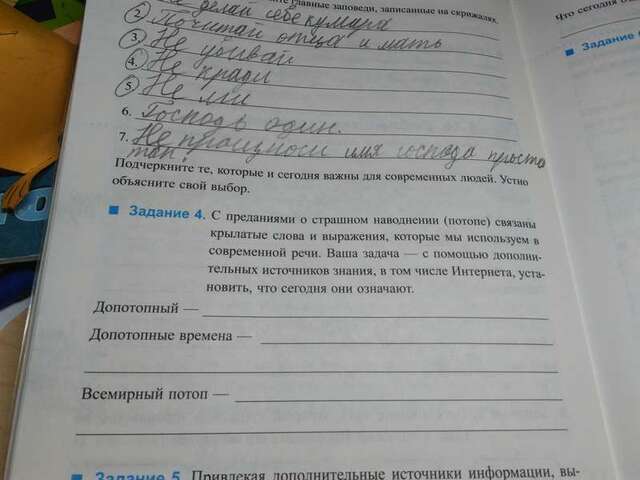 главные заповеди, записанные на скрижалях.
делай себе кумира
2. Почитай отца и мать
3. Не убивай
4. Не кради
5. Не лги
6. Господь один.
7. Не произноси имя господа просто
так!
Подчеркните те, которые и сегодня важны для современных людей. Устно
объясните свой выбор.
Задание 4. С преданиями о страшном наводнении (потопе) связаны
крылатые слова и выражения, которые мы используем в
современной речи. Ваша задача — с помощью дополни-
тельных источников знания, в том числе Интернета, уста-
новить, что сегодня они означают.
Допотопный —
Допотопные времена —
Всемирный потоп —
Задание 5. Привлекая дополнительные источники информации, вы-
Что сегодня
Задание